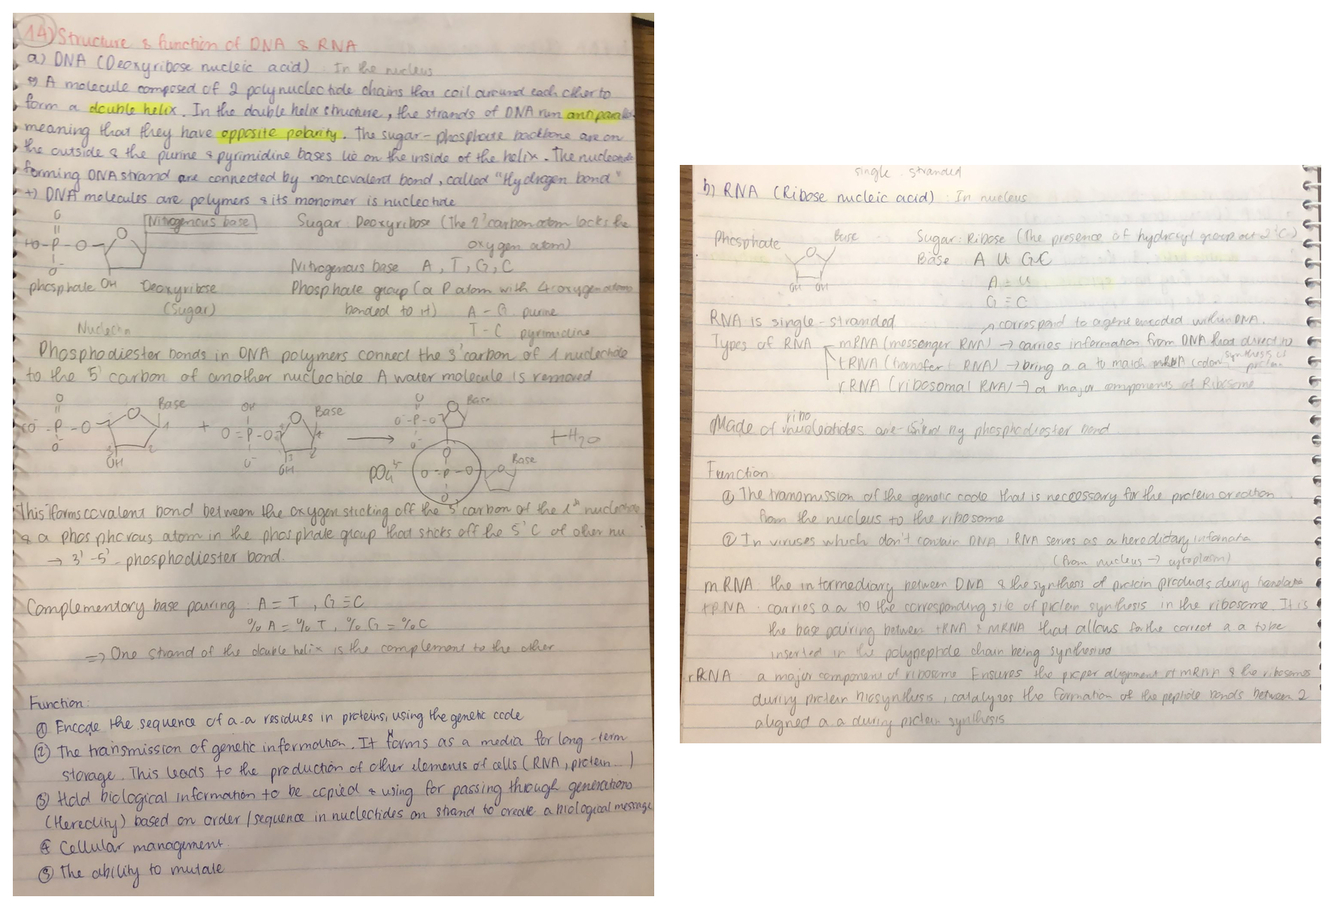 14) Structure & function of DNA & RNA
a) DNA (Deoxyribose nucleic acid) In the nucleus
A molecule composed of 2 polynucleotide chains that coil around each other to
form a double helix. In the double helix structure, the strands of DNA run antiparallel
meaning that they have opposite polarity. The sugar-phosphate backbone are on
the outside & the purine & pyrimidine bases lie on the inside of the helix. The
forming DNA strand are connected by noncovalent bond, called "Hydrogen bond"
DNA molecules are polymers & its monomer is nucleotide
Nitrogenous base
Sugar Deoxyribose (The 2' carbon atom lacks the
oxygen atom)
Nitrogenous base A, T, G, C
phosphate OH Deoxyribose
(Sugar)
Phosphate group (a P atom with 4 oxygen atoms
bonded to it)
A - G purine
T - C pyrimidine
Phosphodiester bonds in DNA polymers connect the 3' carbon of 1 nucleotide
to the 5' carbon of another nucleotide A water molecule is removed
Base
Base
Base
+ H2O
Base
This forms covalent bond between the oxygen sticking off the carbon of the 1st
& a phosphorous atom in the phosphate group that sticks off the 5' C of other nu
→ 3'-5' phosphodiester bond.
Complementary base pairing A = T, G ≡ C
% A = % T, % G = % C
=> One strand of the double helix is the complement to the other
Function:
① Encode the sequence of a-a residues in proteins, using the genetic code
② The transmission of genetic information. It forms as a media for long-term
storage. This leads to the production of other elements of cells (RNA, protein...)
③ Hold biological information to be copied & using for passing through generations
(Heredity) based on order/sequence in nucleotides on strand to create a biological message
④ Cellular management
⑤ The ability to mutate
single stranded
b) RNA (Ribose nucleic acid): In nucleus
Phosphate Base
Sugar: Ribose (The presence of hydroxyl group at 2'C)
Base A U G C
A = U
G ≡ C
OH OH
RNA is single-stranded
correspond to a gene encoded within DNA.
Types of RNA mRNA (messenger RNA) → carries information from DNA that direct
synthesis of protein
tRNA (transfer RNA) → bring a a to match mRNA codon
rRNA (ribosomal RNA) → a major components of Ribosome
ribo
Made of nucleotides are linked by phosphodiester bond
Function
① The transmission of the genetic code that is neccessary for the protein creation
from the nucleus to the ribosome
② In viruses which don't contain DNA, RNA serves as a hereditary
(from nucleus → cytoplasm)
mRNA the intermediary between DNA & the synthesis of protein products during
tRNA carries a a to the corresponding site of protein synthesis in the ribosome. It is
the base pairing between tRNA & mRNA that allows for the correct a a to be
inserted in the polypeptide chain being synthesised
rRNA a major component of ribosome Ensures the proper alignment of mRNA & the ribosomes
during protein biosynthesis, catalyzes the formation of the peptide bonds between 2
aligned a a during protein synthesis